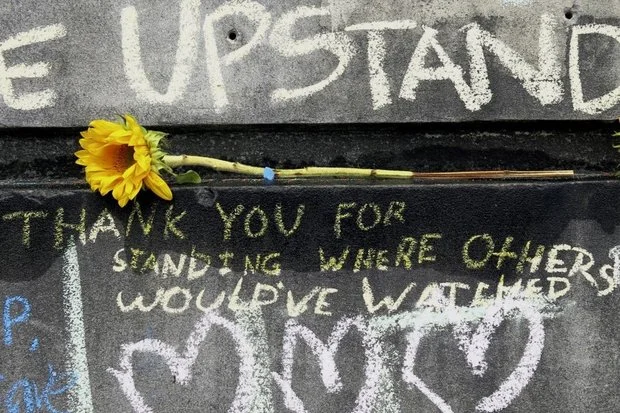 E UPSTAND
THANK YOU FOR
STANDING WHERE OTHERS
WOULD'VE WATCHED
P,